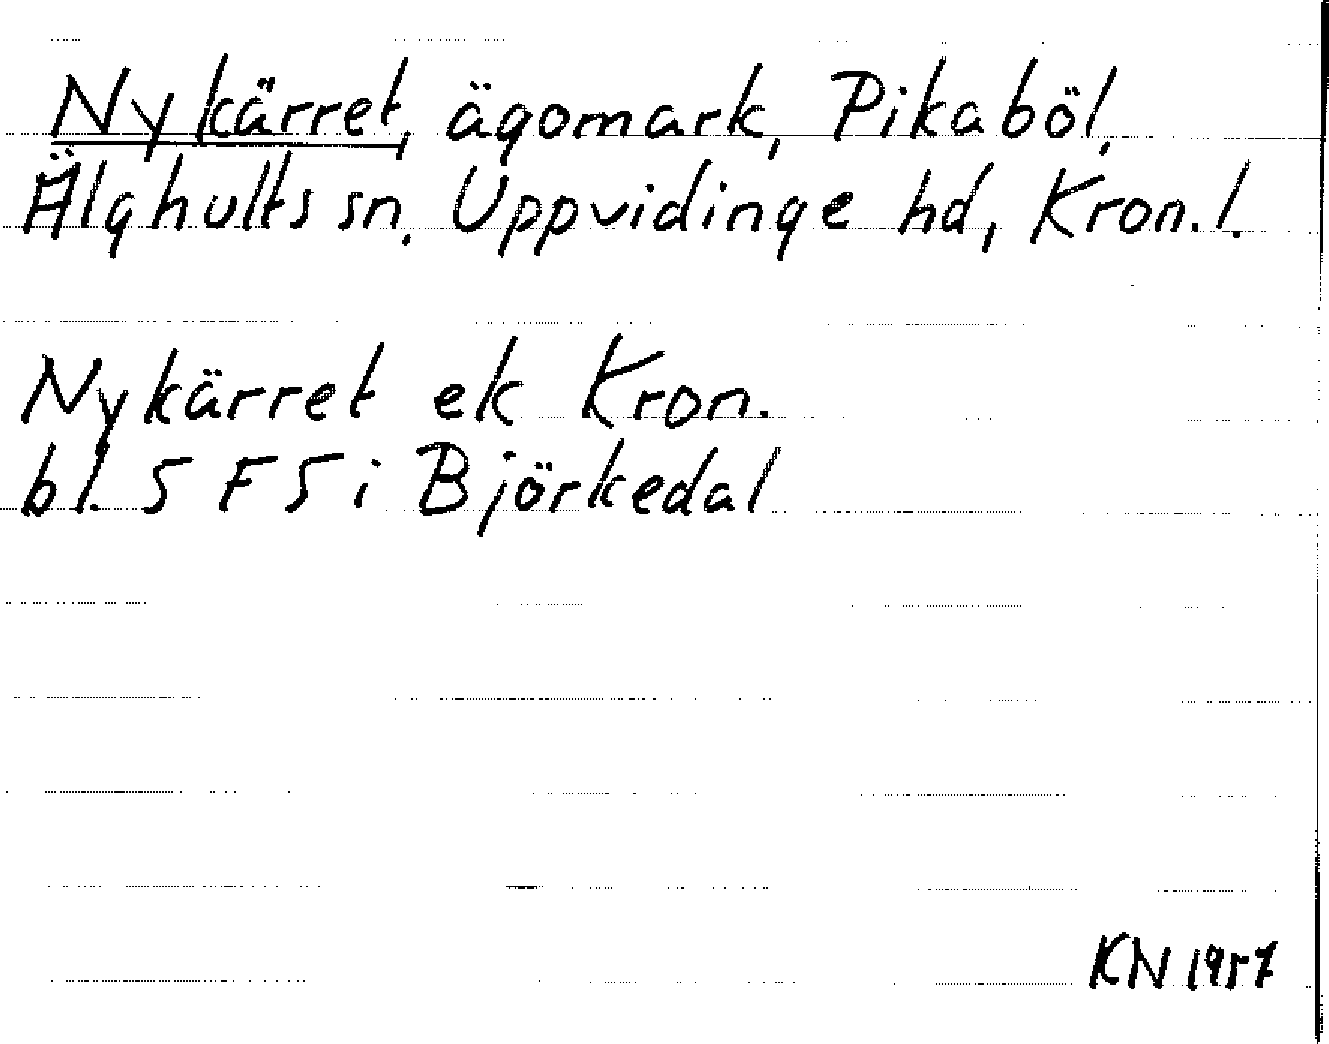 Nykärret, ägomark, Pikaböl,
Älghults sn, Uppvidinge hd, Kron. l.
Nykärret ek Kron.
bl. 5 F 5 i Björkedal
KN 1957